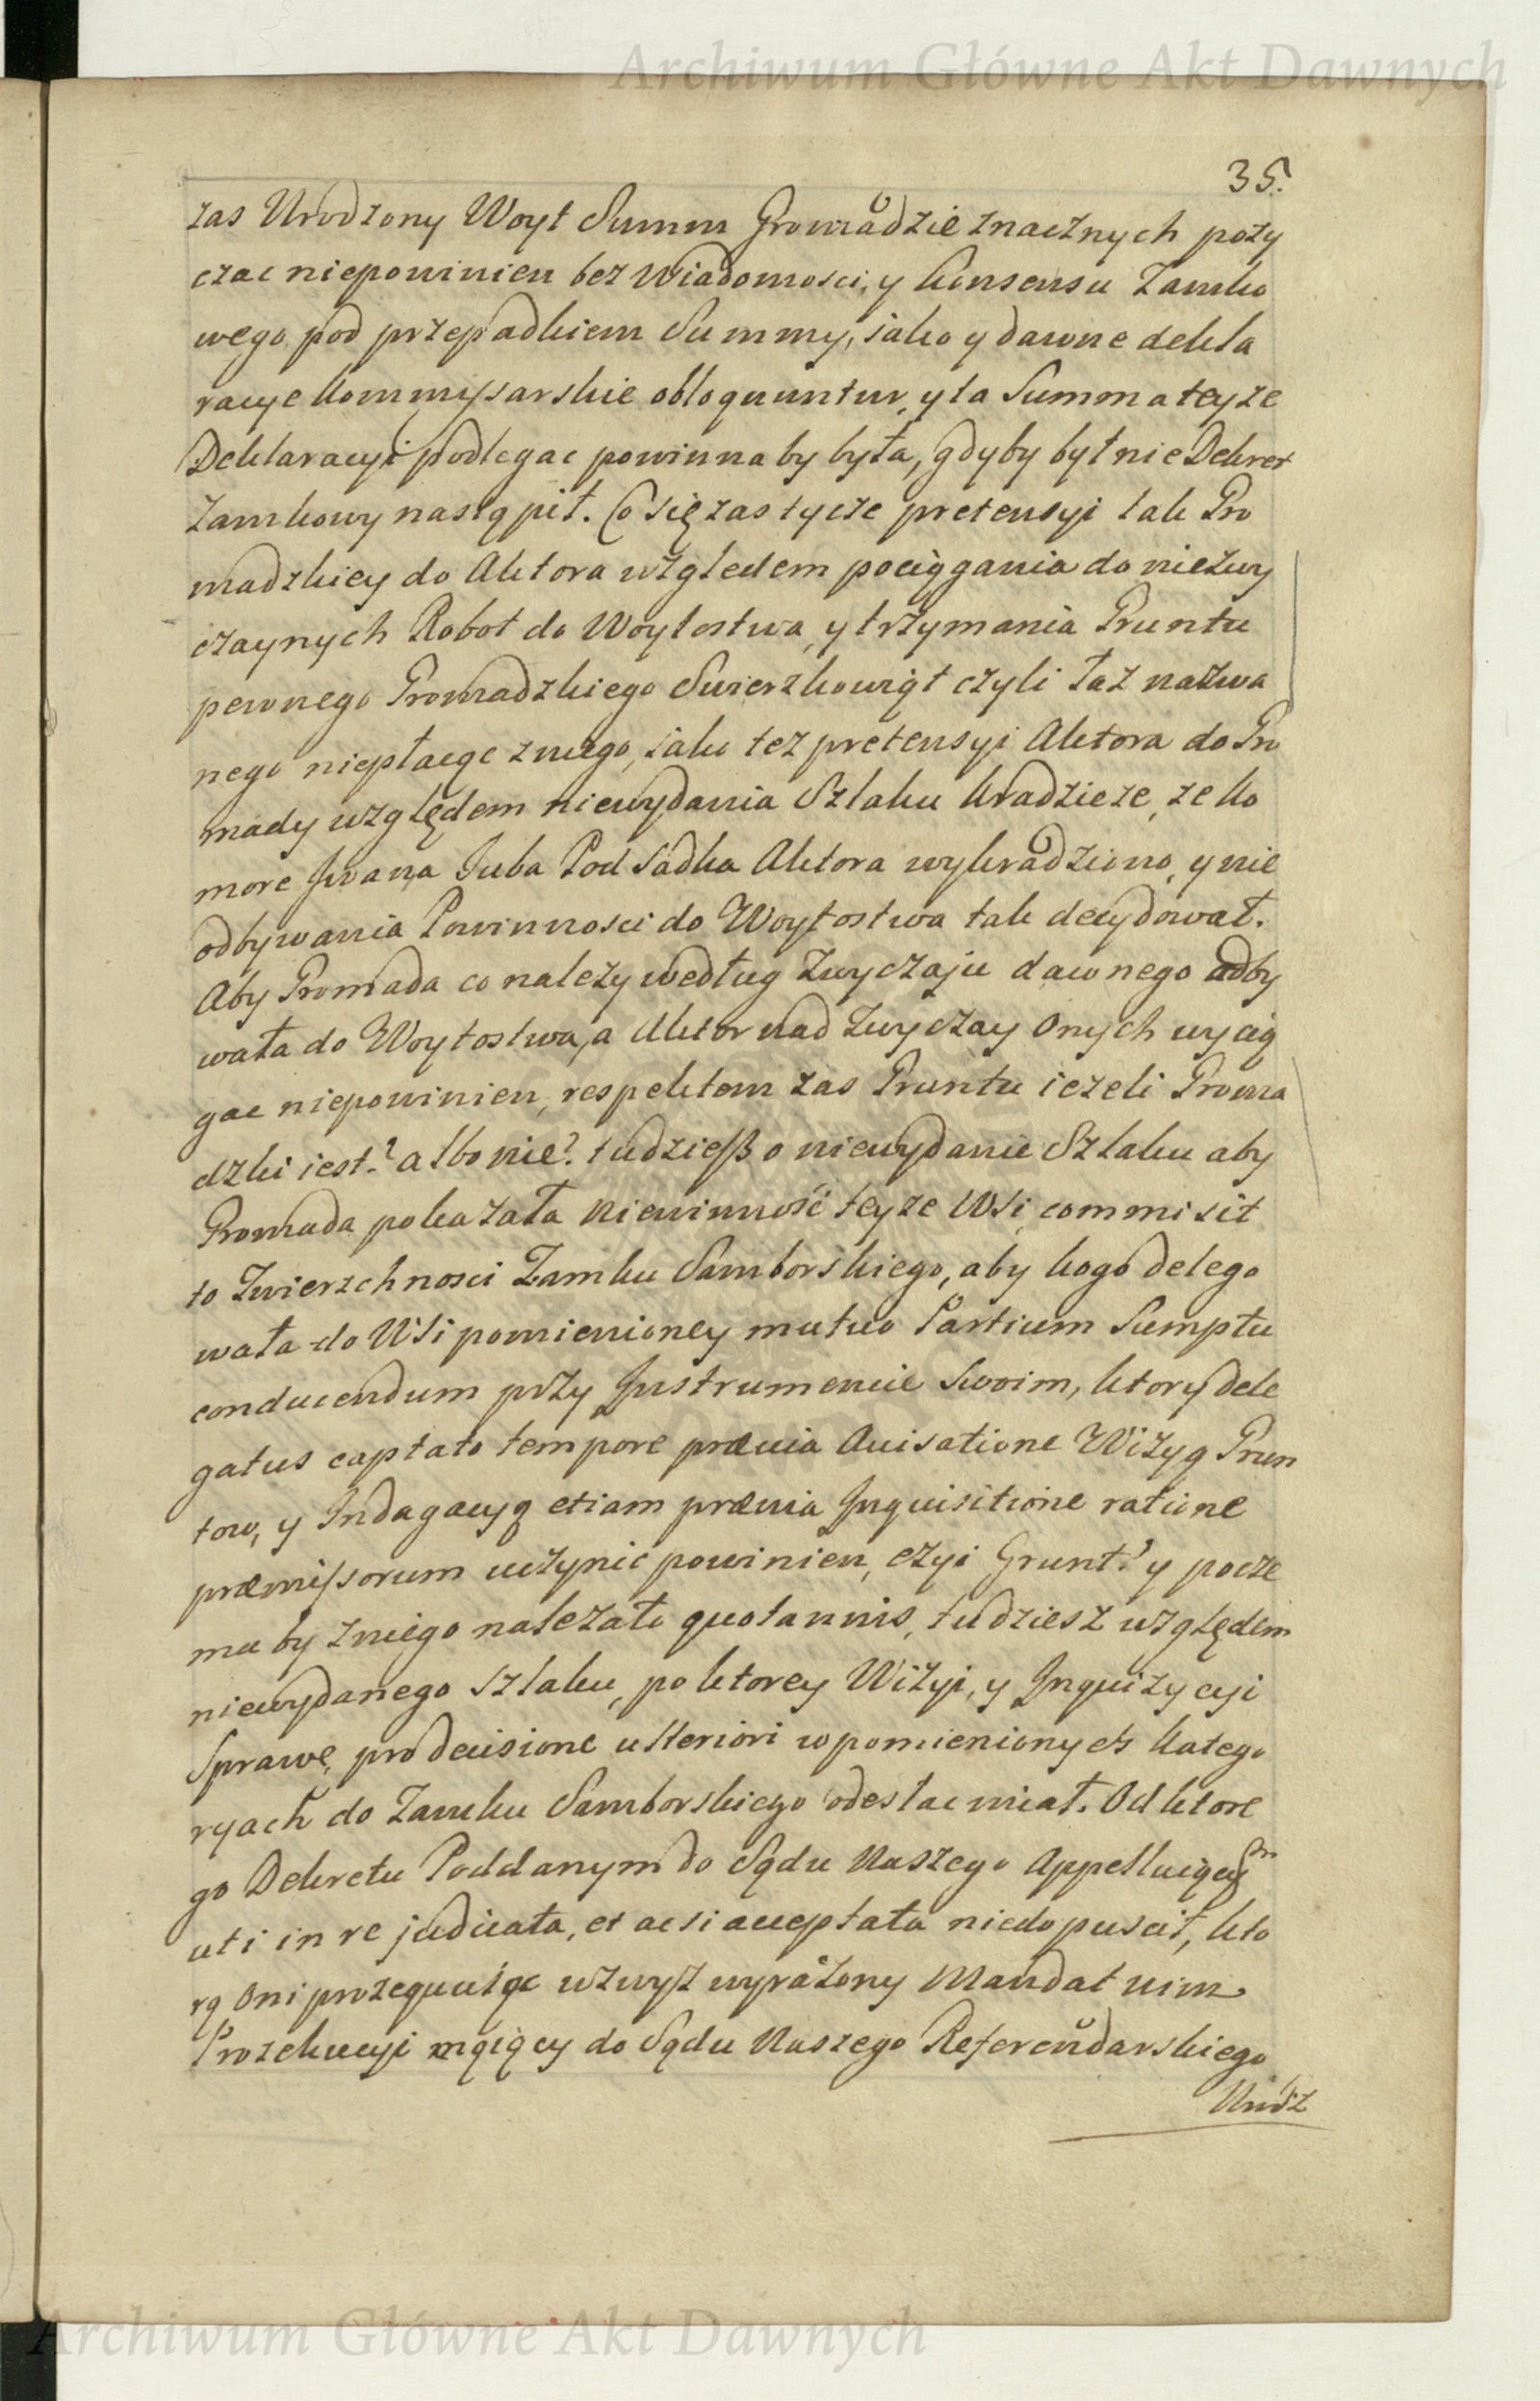 Archiwum Główne Akt Dawnych
35.
zas Urodzony Woyt Summ Gromadzie znacznych pozy
czac niepowinien bez Wiadomosci, y konsensu Zamko
wego pod przepadkiem Summy, iako y dawne dekla
racye kommissarskie obloquuntur, y ta Summa teyze
Deklaracyi podlegac powinna by była, gdyby był nie Dekret
Zamkowy nastąpił. Co się zas tycze pretensyi tak Gro
madzkiey do Aktora względem pociągania do niezwy
czaynych Robot do Woytostwa, y trzymania Gruntu
pewnego Gromadzkiego Swierzkowiąt czyli Łaz nazwa
nego niepłacąc z niego, iako tez pretensyi Aktora do Gro
mady względem niewydania Szlaku kradzieze, ze ko
more Jwana Juba Pod Sadka Aktora wykradziono, y nie
odbywania Powinnosci do Woytostwa tak decydował.
Aby Gromada co nalezy według Zwyczaju dawnego odby
wała do Woytostwa, a Aktor nad Zwyczay Onych wycią
gac niepowinien, respektem zas Gruntu iezeli Groma
dzki iest? albo nie? tudzieß o niewydanie Szlaku aby
Gromada pokazała niewinność teyze Wsi, commisit
to Zwierzchnosci Zamku Samborskiego, aby kogo delego
wała do Wsi pomienioney mutuo Partium Sumptu
conducendum przy Jnstrumencie Swoim, ktory dele
gatus captato tempore prævia Avisatione Wizyą Grun
tow, y Indagacyą etiam prævia Jnquisitione ratione
præmissorum uczynic powinien, czyi Grunt? y pocze
mu by z niego nalezało quotannis, tudziesz względem
niewydanego Szlaku, po ktorey Wizyi, y Jnquizycyi
Sprawę, pro decisione ulteriori w pomienionych katego
ryach do Zamku Samborskiego odesłac miał. Od ktore
go Dekretu Poddanym do Sądu Naszego Appelluiącym
uti in re judicata, et ac si acceptata niedopuscił, kto
rą Oni prozequuiąc wzwysz wyrażony Mandat vim
Prozekucyi maiący do Sądu Naszego Referendarskiego
Archiwum Główne Akt Dawnych